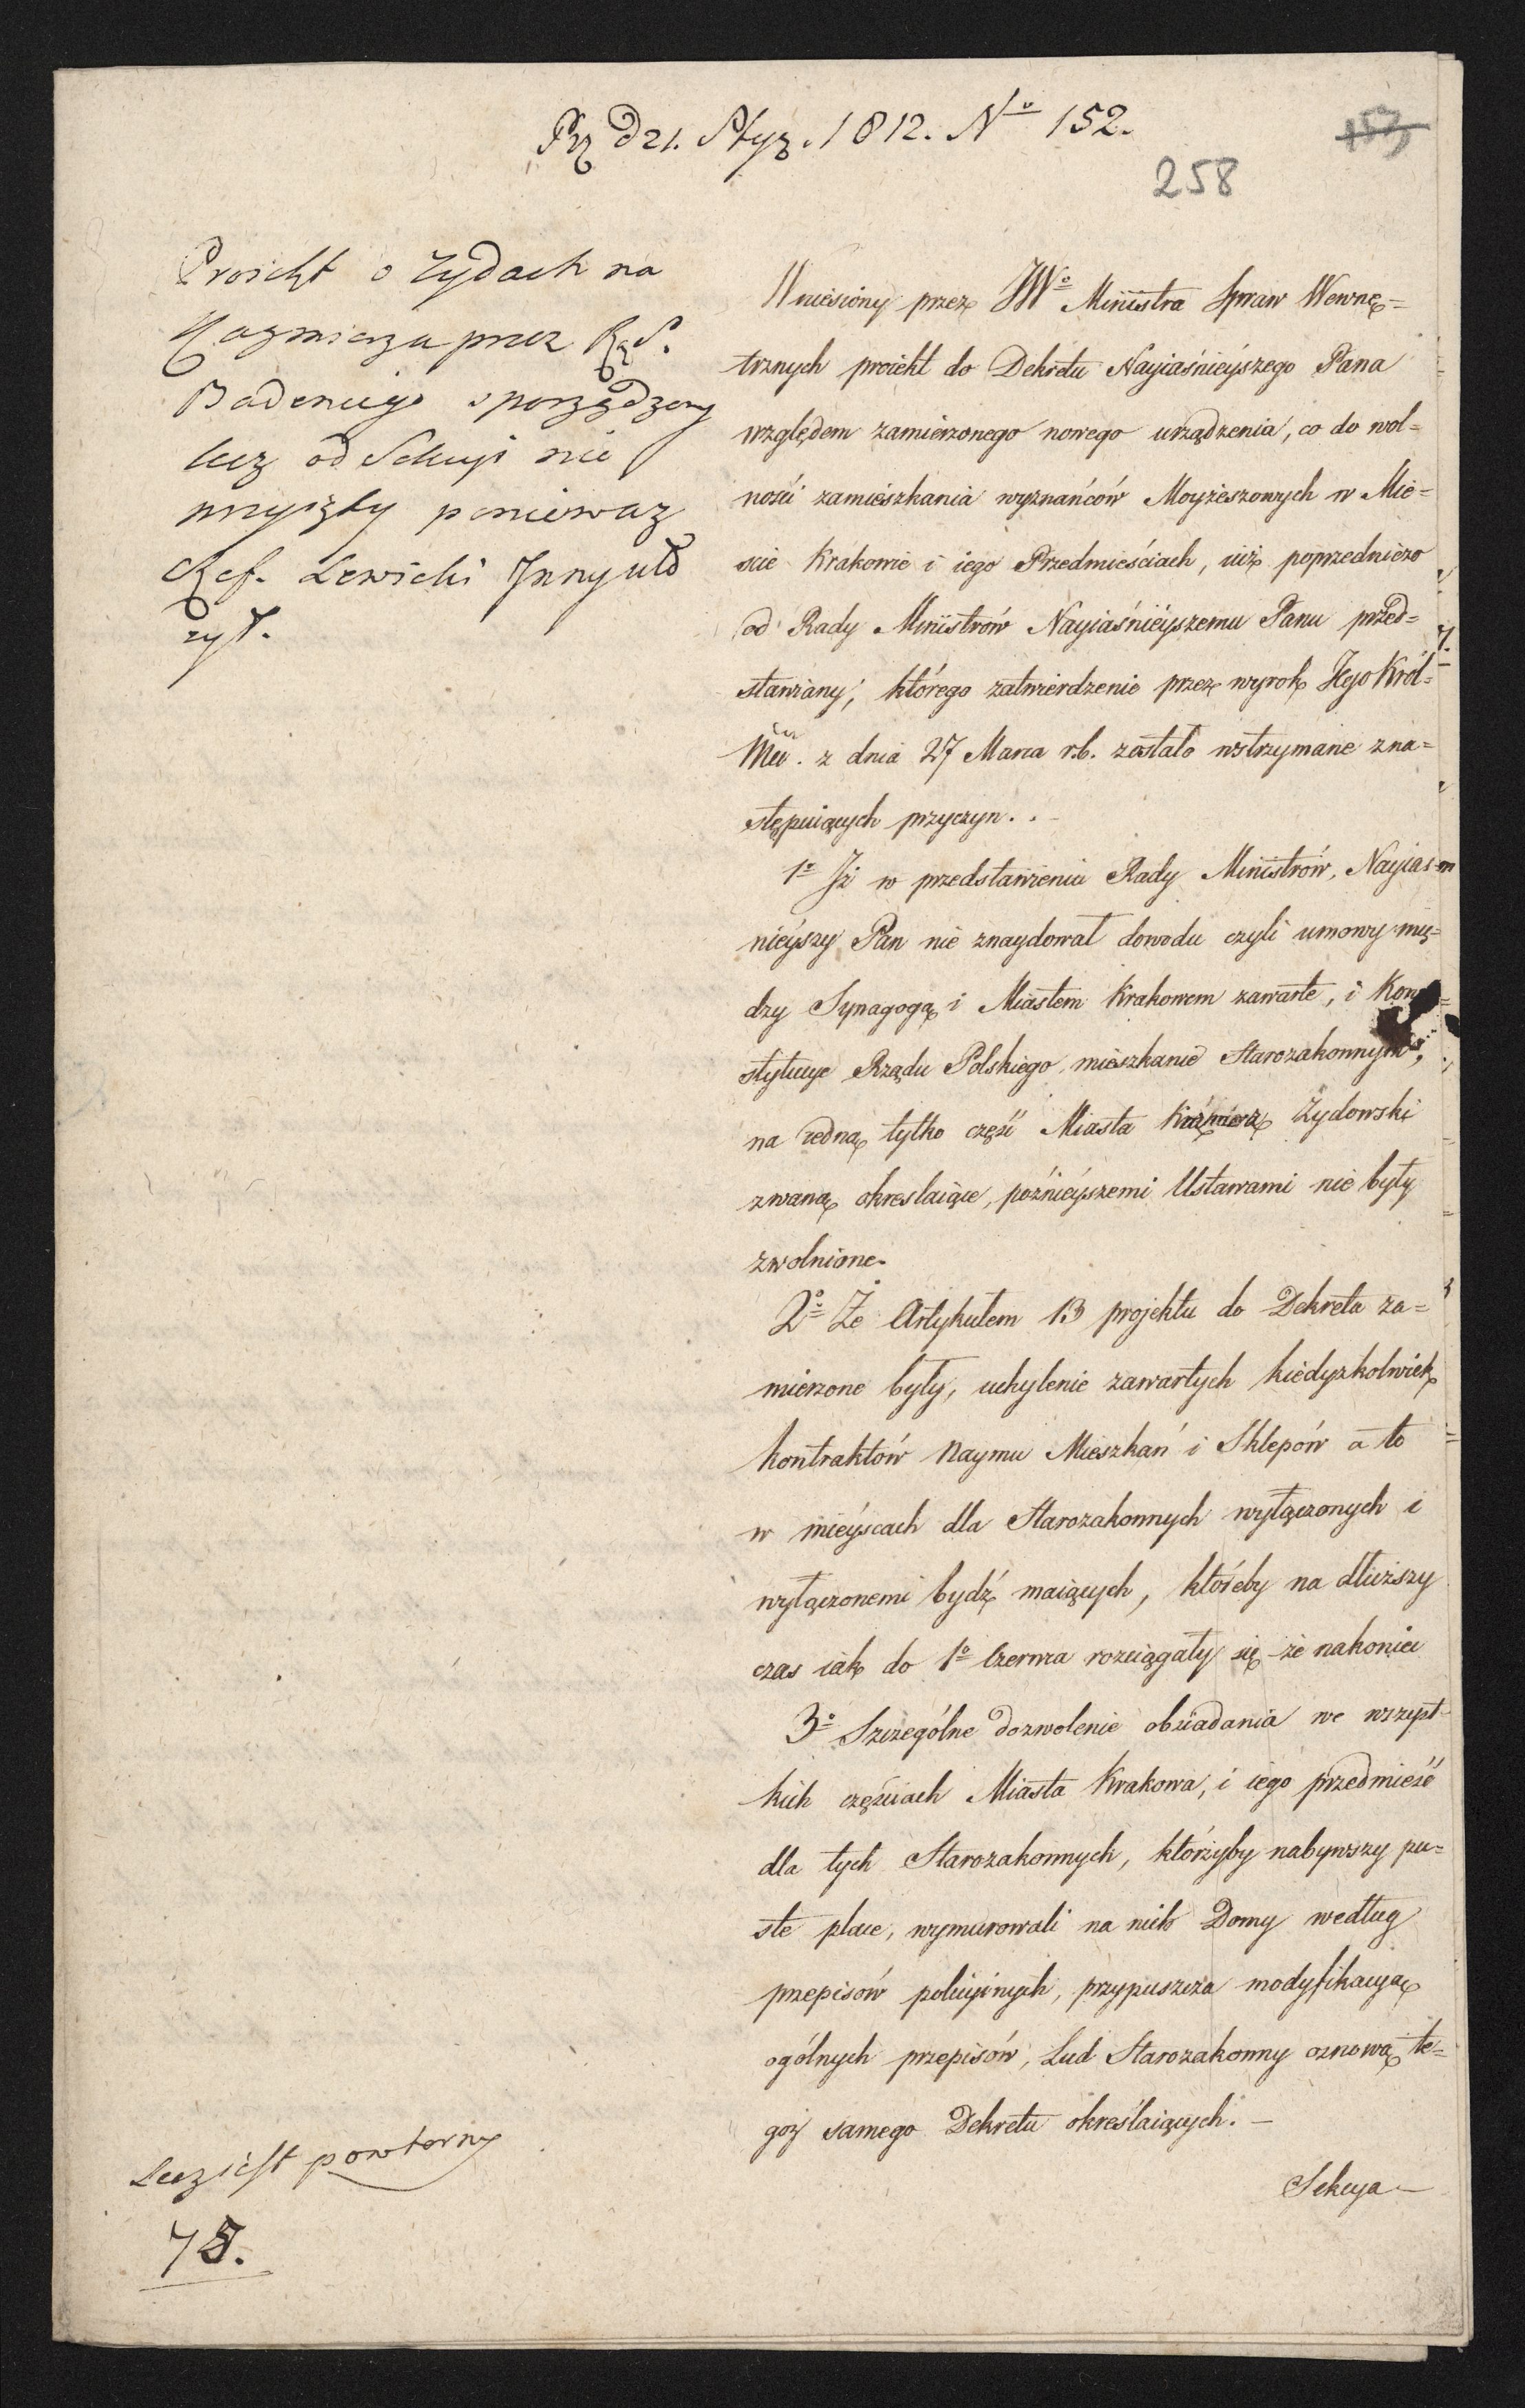 Prz d 21. Stycz. 1812. Nº 152.
258
Proiekt o Zydach na
Kazmierzu przez Rz. S.
Badeniego sporządzony
lecz od Sekcyi nie
przyięty poniewaz
Ref. Lewicki Inny uło
zył.
Wniesiony przez JWº Ministra Spraw Wewnę=
trznych proiekt do Dekretu Nayiaśnieyszego Pana
względem zamierzonego nowego urządzenia, co do wol=
ności zamieszkania wyznańców Moyżeszowych w Mie=
scie Krakowie i iego Przedmieściach, iuż poprzedniczo
od Rady Ministrów Nayiaśnieyszemu Panu przed=
stawiany, którego zatwierdzenie przez wyrok Jego Król=
Mci. z dnia 27 Marca r.b. zostało wstrzymane z na=
stępuiących przyczyn. . –
1º Iż w przedstawieniu Rady Ministrów, Nayias=
nieyszy Pan nie znaydował dowodu czyli umowy mię=
dzy Synagogą i Miastem Krakowem zawarte, i Kon=
stytucye Rządu Polskiego mieszkanie Starozakonnym,
na iedną tylko część Miasta Kazmierz Zydowski
zwaną okreslaiące, poźnieyszemi Ustawami nie były
zwolnione.
2º Że Artykułem 13 projektu do Dekretu za=
mierzone były, uchylenie zawartych kiedyzkolwiek
kontraktów Naymu Mieszkań i Sklepów a to
w mieyscach dla Starozakonnych wyłączonych i
wyłączonemi bydź maiących, któreby na dłuższy
czas iak do 1º Czerwca rozciągały się że nakoniec
3º Szczególne dozwolenie obsiadania we wszyst=
kich częściach Miasta Krakowa, i iego przedmieść
dla tych Starozakonnych, którzyby nabywszy pu=
ste place, wymurowali na nich Domy według
przepisów policyinych, przypuszcza modyfikacyą
ogólnych przepisów, Lud Starozakonny osnową te=
goż samego Dekretu okreslaiących. –
Sekcya –
Lecz iest powtorny